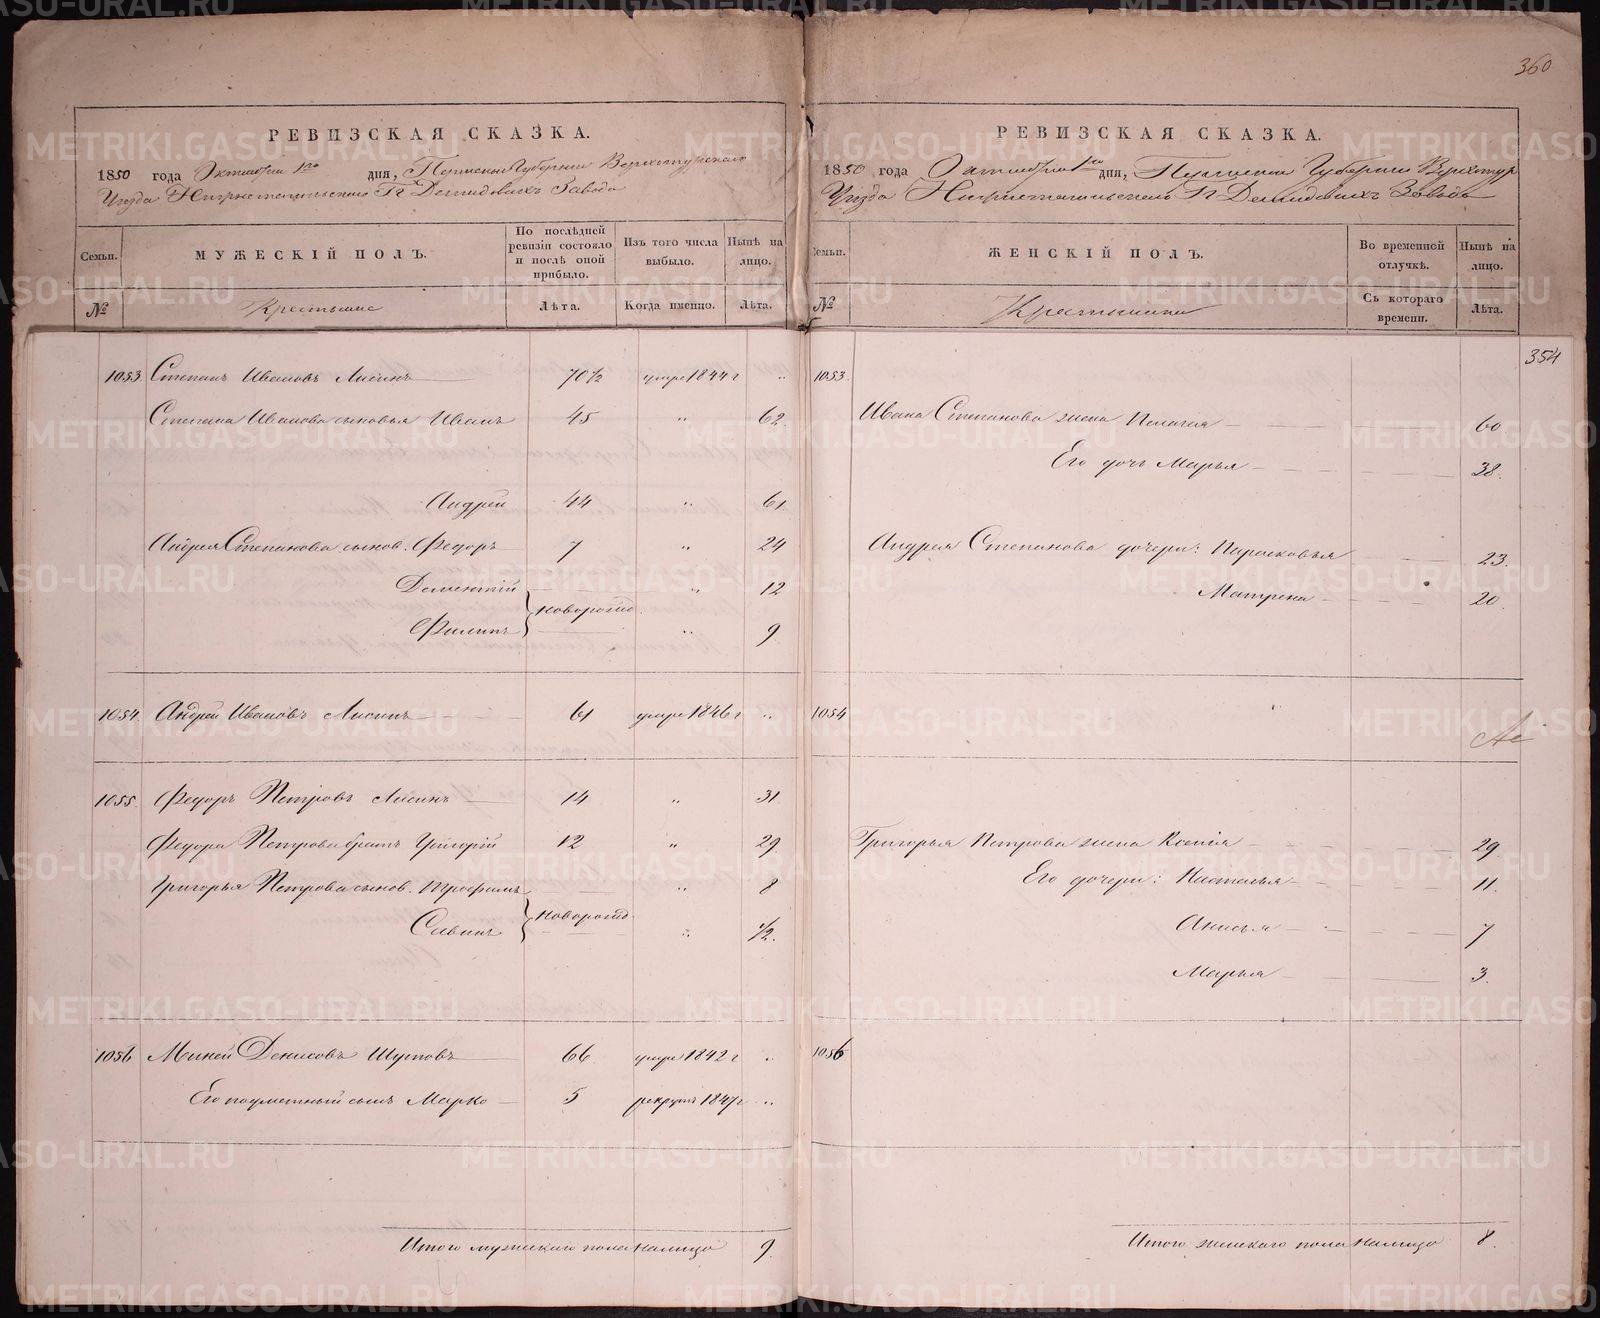 360
РЕВИЗСКАЯ СКАЗКА.
1850 года Октября 1го дня, Пермской Губернии Верхотурскаго
Уѣзда Нижнетагильскаго Гг Демидовыхъ Завода
Семьи.
МУЖЕСКІЙ ПОЛЪ.
По послѣдней ревизіи состояло и послѣ оной прибыло.
Изъ того числа выбыло.
Нынѣ на лицо.
№
Крестьяне
Лѣта.
Когда именно.
Лѣта.
1053. Степанъ Ивановъ Лисинъ 70½ умре 1844 г "
Степана Иванова сыновья Иванъ 45 " 62.
Андрей 44 " 61
Андрея Степанова сынов. Федоръ 7 " 24
Дементій " 12
новорожд.
Филипъ " 9
1054. Андрей Ивановъ Лисинъ 61 умре 1846 г "
1055. Федоръ Петровъ Лисинъ 14 " 31
Федора Петрова братъ Григорій 12 " 29
Григорья Петрова сынов. Трофимъ " 8
новорожд.
Савинъ " ½.
1056 Миней Денисовъ Шутовъ 66 умре 1842 г "
Его подметный сынъ Марко 5 рекрутъ 1847 г "
Итого мужескаго пола налицо 9.
РЕВИЗСКАЯ СКАЗКА.
1850 года Октября 1го дня, Пермской Губерніи Верхотур
Уѣзда Нижнетагильскаго Гг Демидовыхъ Завода
Семьи.
ЖЕНСКІЙ ПОЛЪ.
Во временной отлучкѣ.
Нынѣ на лицо.
№
Крестьянки
Съ котораго времени.
Лѣта.
354
1053.
Ивана Степанова жена Пелагея 60
Его дочь Марья 38.
Андрея Степанова дочери: Парасковья 23.
Матрена 20.
1054
1055.
Григорья Петрова жена Ксенія 29
Его дочери: Наталья 11.
Анисья 7
Марья 3.
1056
Итого женскаго пола налицо 8.
METRIKI.GASO-URAL.RU